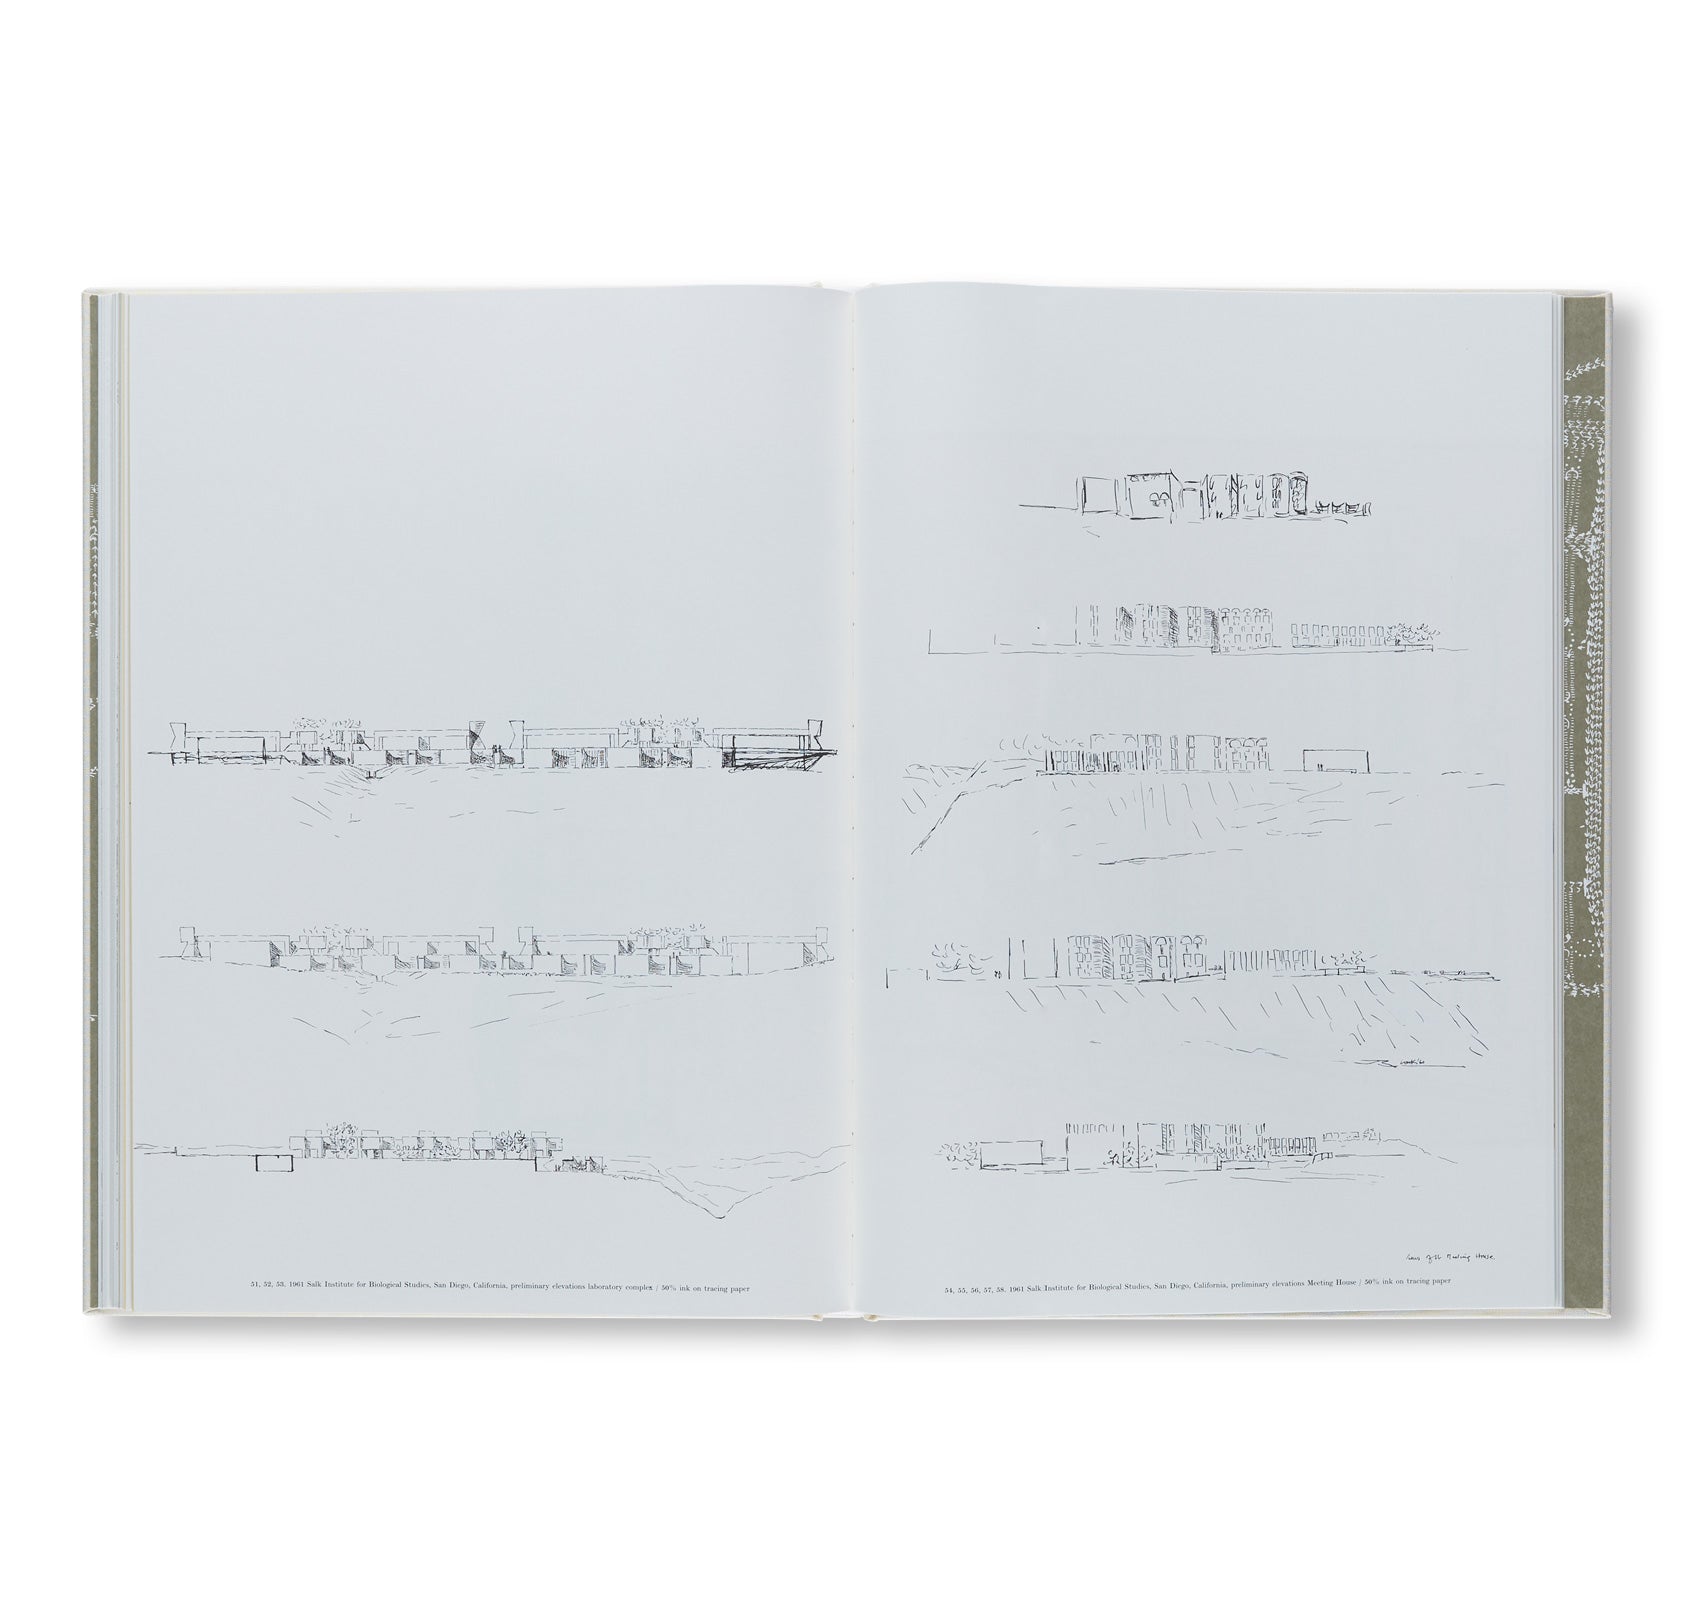 51, 52, 53. 1961 Salk Institute for Biological Studies, San Diego, California, preliminary elevations laboratory complex / 50% ink on tracing paper
Meeting House
54, 55, 56, 57, 58. 1961 Salk Institute for Biological Studies, San Diego, California, preliminary elevations Meeting House / 50% ink on tracing paper